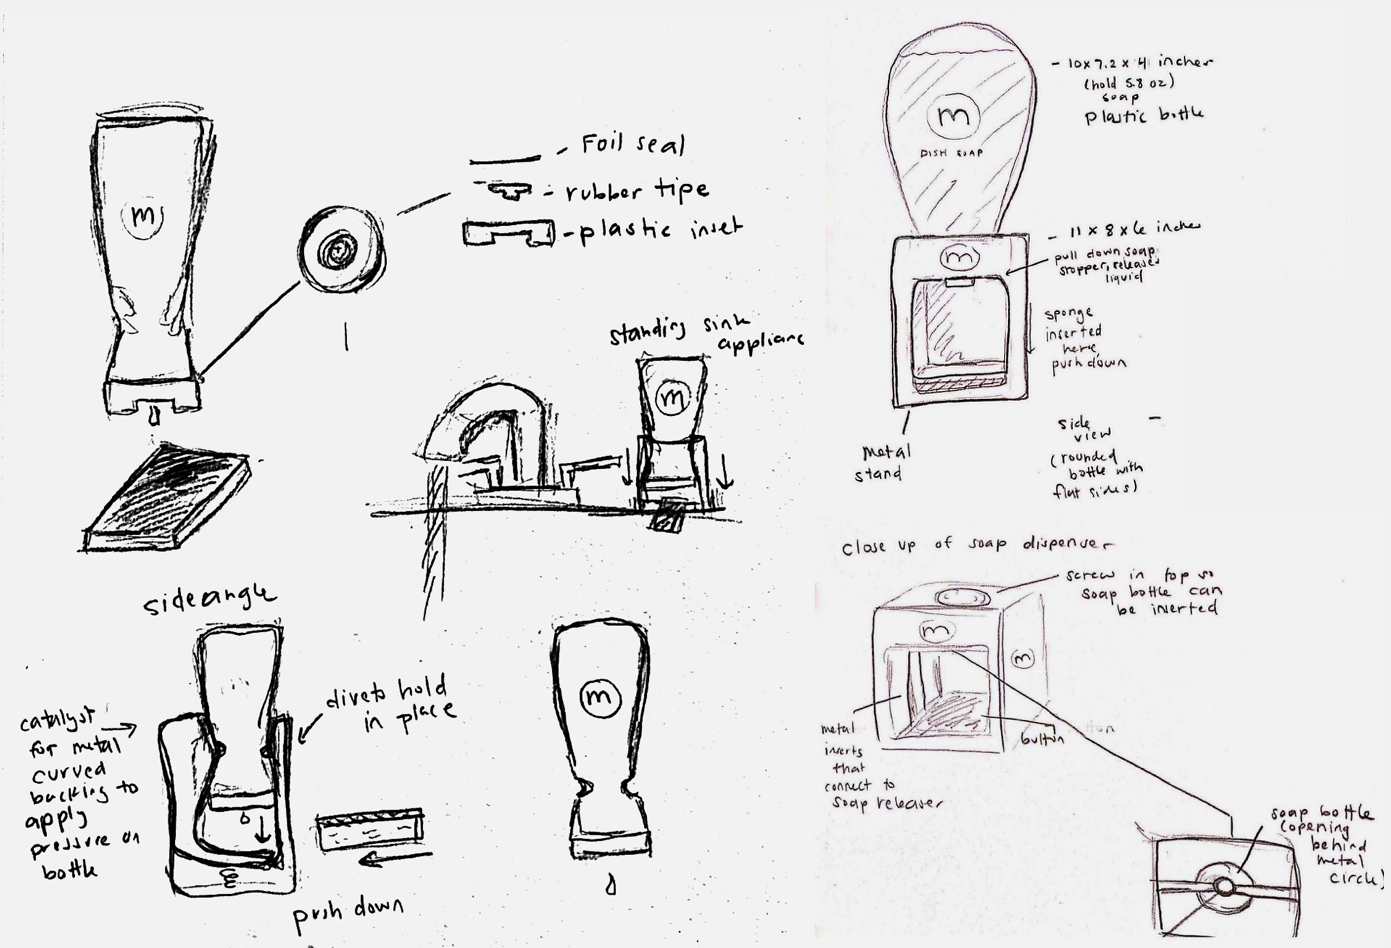 m
- Foil seal
- rubber tipe
- plastic inset
standing sink
appliance
m
m
sideangle
catalyst
for metal
curved
backing to
apply
pressure on
bottle
divets hold
in place
push down
m
m
DISH SOAP
- 10 x 7.2 x 4 inches
(hold 5.8 oz)
soap
plastic bottle
- 11 x 8 x 6 inches
m
pull down soap
stopper, releases
liquid
sponge
inserted
here,
push down
metal
stand
side
view
(rounded
bottle with
flat sides)
close up of soap dispenser
screw in top so
soap bottle can
be inserted
m
m
metal
inserts
that
connect to
soap releaser
button
soap bottle
(opening
behind
metal
circle)